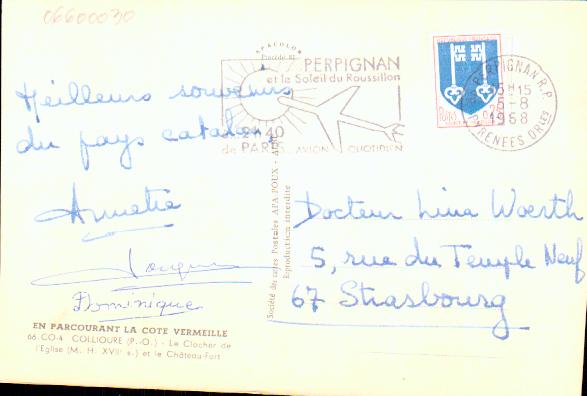 06600030
APACOLOR
PERPIGNAN
et le Soleil du Roussillon
2H40
de PARIS AVION QUOTIDIEN
REPUBLIQUE FRANÇAISE
0,25
PERPIGNAN R.P.
15H15
5-8
1968
PYRENEES ORles
Meilleurs souvenirs
du pays catalan
Dominique
EN PARCOURANT LA COTE VERMEILLE
66-CO-4 COLLIOURE (P.-O.) - Le Clocher de
l'Eglise (M. H. XVIIe s.) et le Château-Fort
Société des cartes Postales APA-POUX - ALBI
Reproduction interdite
Docteur Lina Woerth
5, rue du Temple Neuf
67 Strasbourg